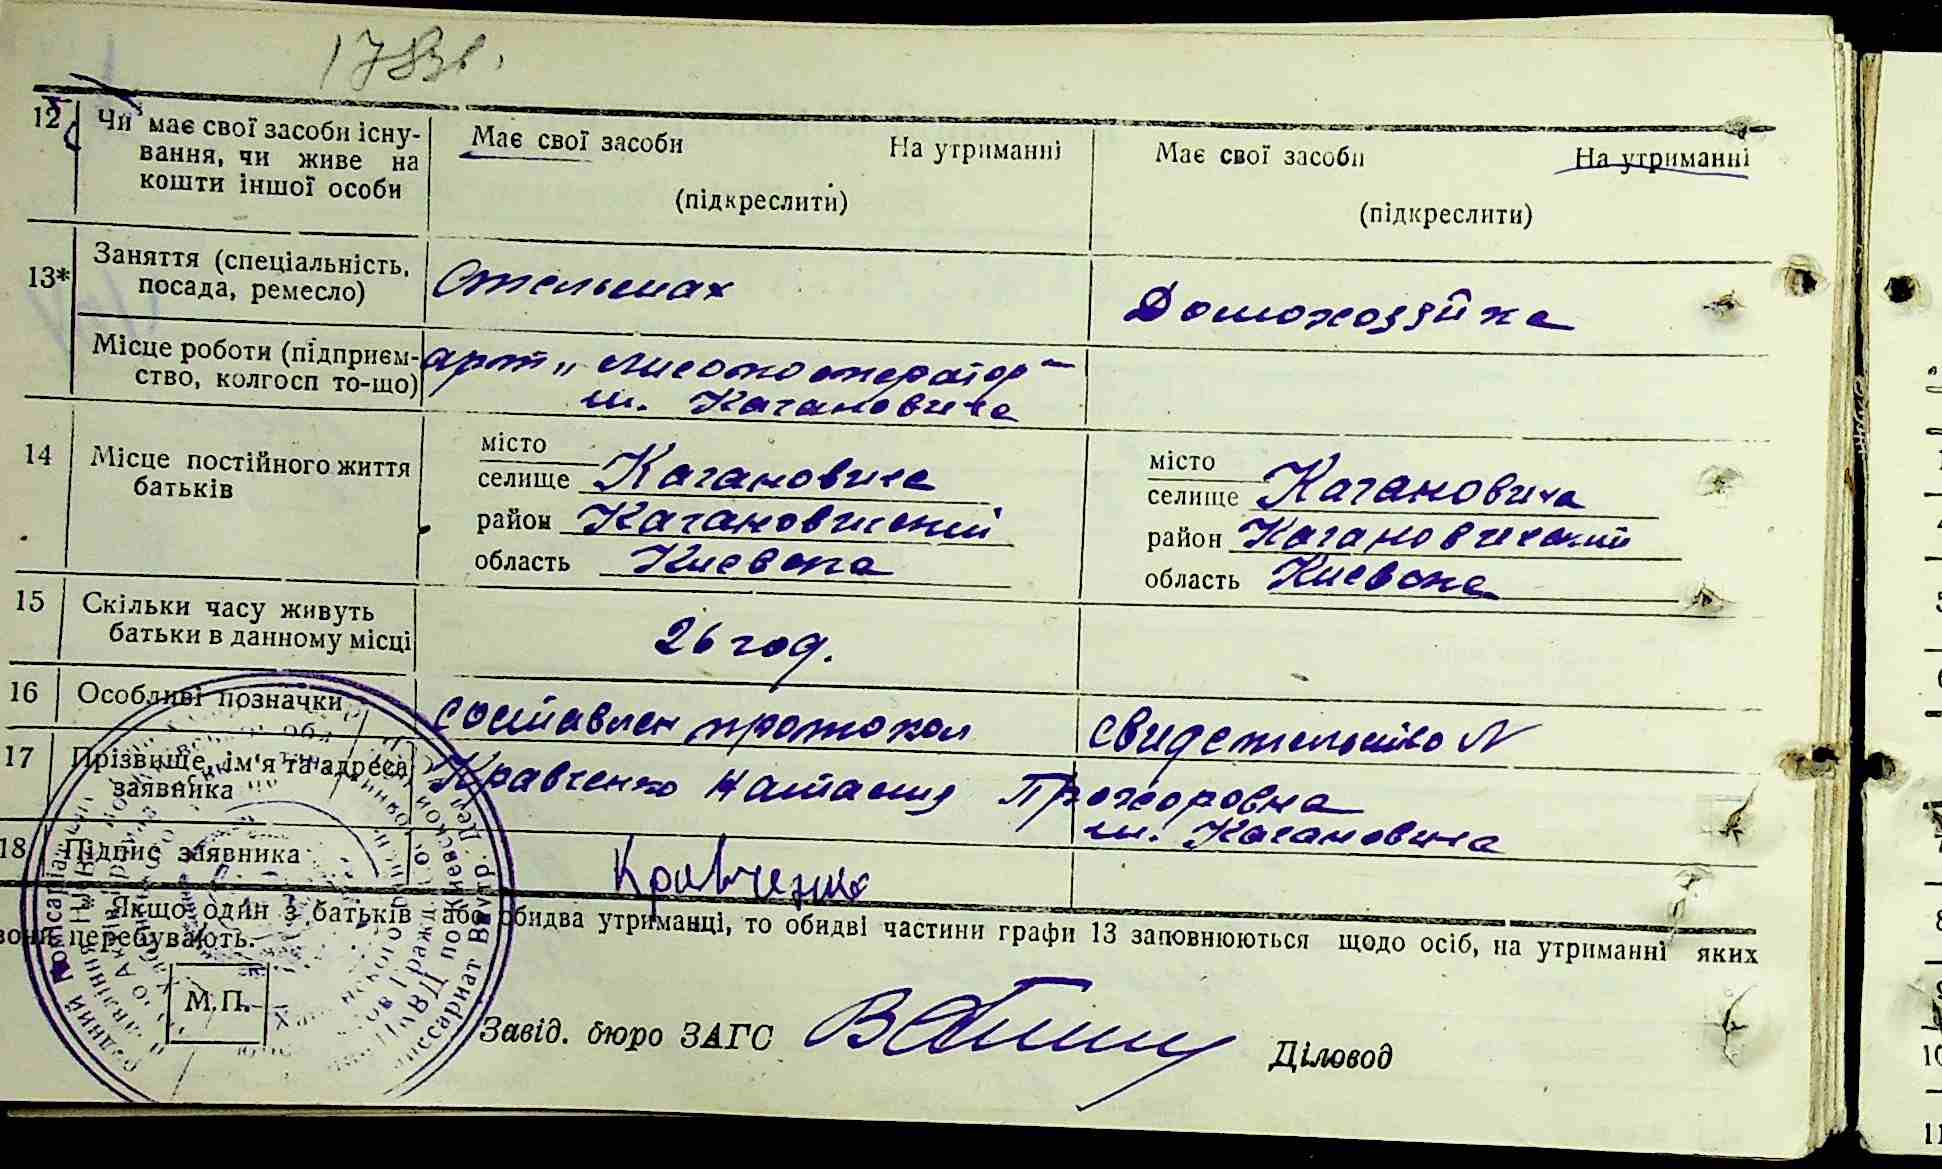 178зв.
12 Чи має свої засоби існу- Має свої засоби На утриманні Має свої засоби На утриманні
вання, чи живе на
кошти іншої особи (підкреслити) (підкреслити)
13* Заняття (спеціальність, Стельмах Домохозяйка
посада, ремесло)
Місце роботи (підприєм- арт „
ство, колгосп то-що) м. Кагановича
14 Місце постійного життя місто місто
батьків селище Кагановича селище Кагановича
район Кагановичский район Кагановичский
область Киевска область Киевска
15 Скільки часу живуть 26 год.
батьки в данному місці
16 Особливі позначки составлен протокол свидетельство N
17 Прізвище, ім'я та адреса Кравченко Наталия Прохоровна
заявника м. Кагановича
18 Підпис заявника Кравченко
Якщо один з батьків або обидва утриманці, то обидві частини графи 13 заповнюються щодо осіб, на утриманні яких
вони перебувають.
М.П.
Завід. бюро ЗАГС Діловод